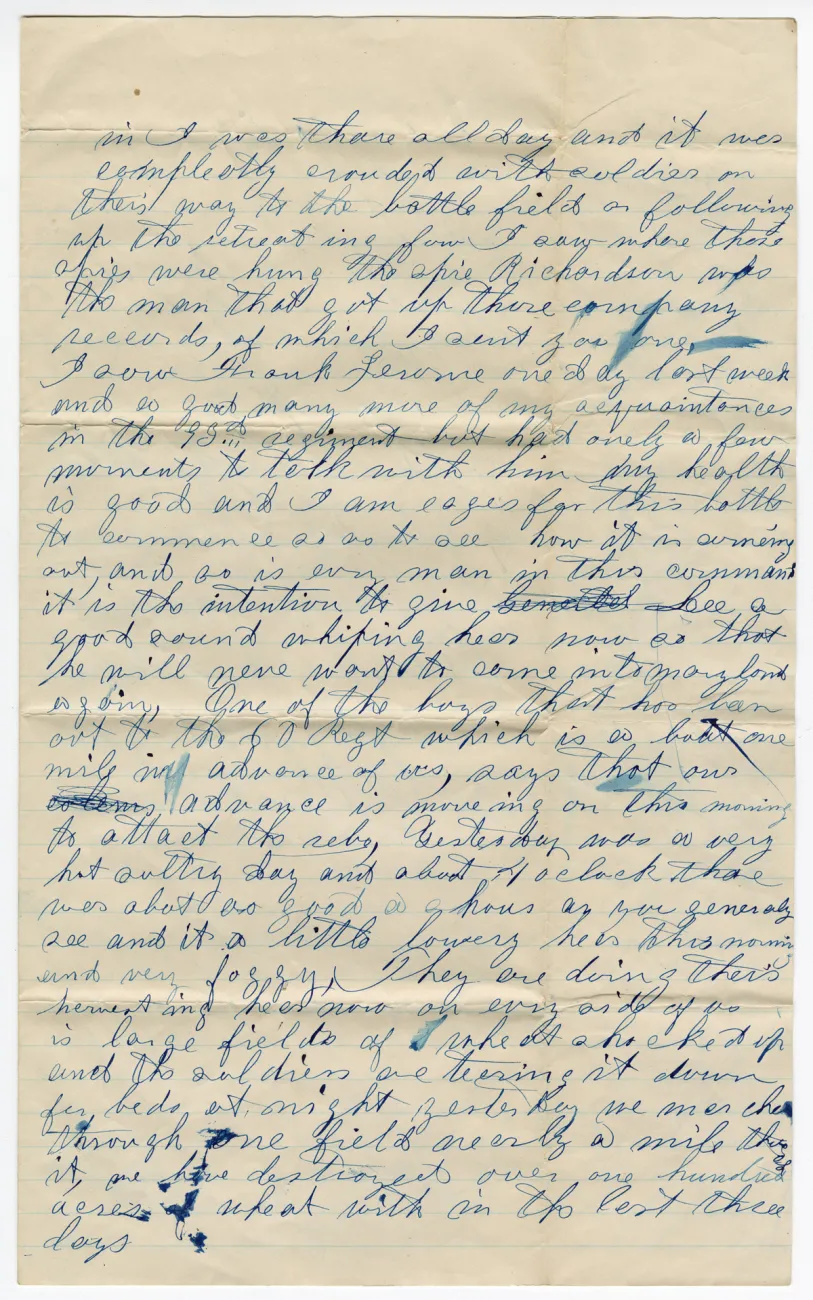 in I was thare all day and it was
compleatly crouded with soldies on
their way to the battle field or following
up the retreat ing fow I saw where those
spies were hung the spie Richardson was
the man that got up those company
records, of which I sent you one,
I saw Frank Jerome one day last week
and a good many more of my acquaintances
in the 93rd regiment but had onely a few
moments to talk with him my health
is good and I am eager for this battle
to commence so as to see how it is comeing
out, and so is evry man in this command
it is the intention to give Lee a
good sound whiping hear now so that
he will neve want to come into maryland
again, One of the boys that has been
out to the 60 Regt which is a bout one
mile in advance of us, says that our
advance is moveing on this morning
to attact the rebs, Yesterday was a very
hot sultry day and about 4 oclock thare
was about as good a shour as you generaly
see and it a little lowery hear this morning
and very foggy, They are doing theis
hervest ing hear now on evry side of us
is large fields of wheat shocked up
and the soldiers are teering it down
for beds at night yesterday we marched
through one field nearly a mile
it, we have destroyed over one hundred
acres of wheat with in the last three
days